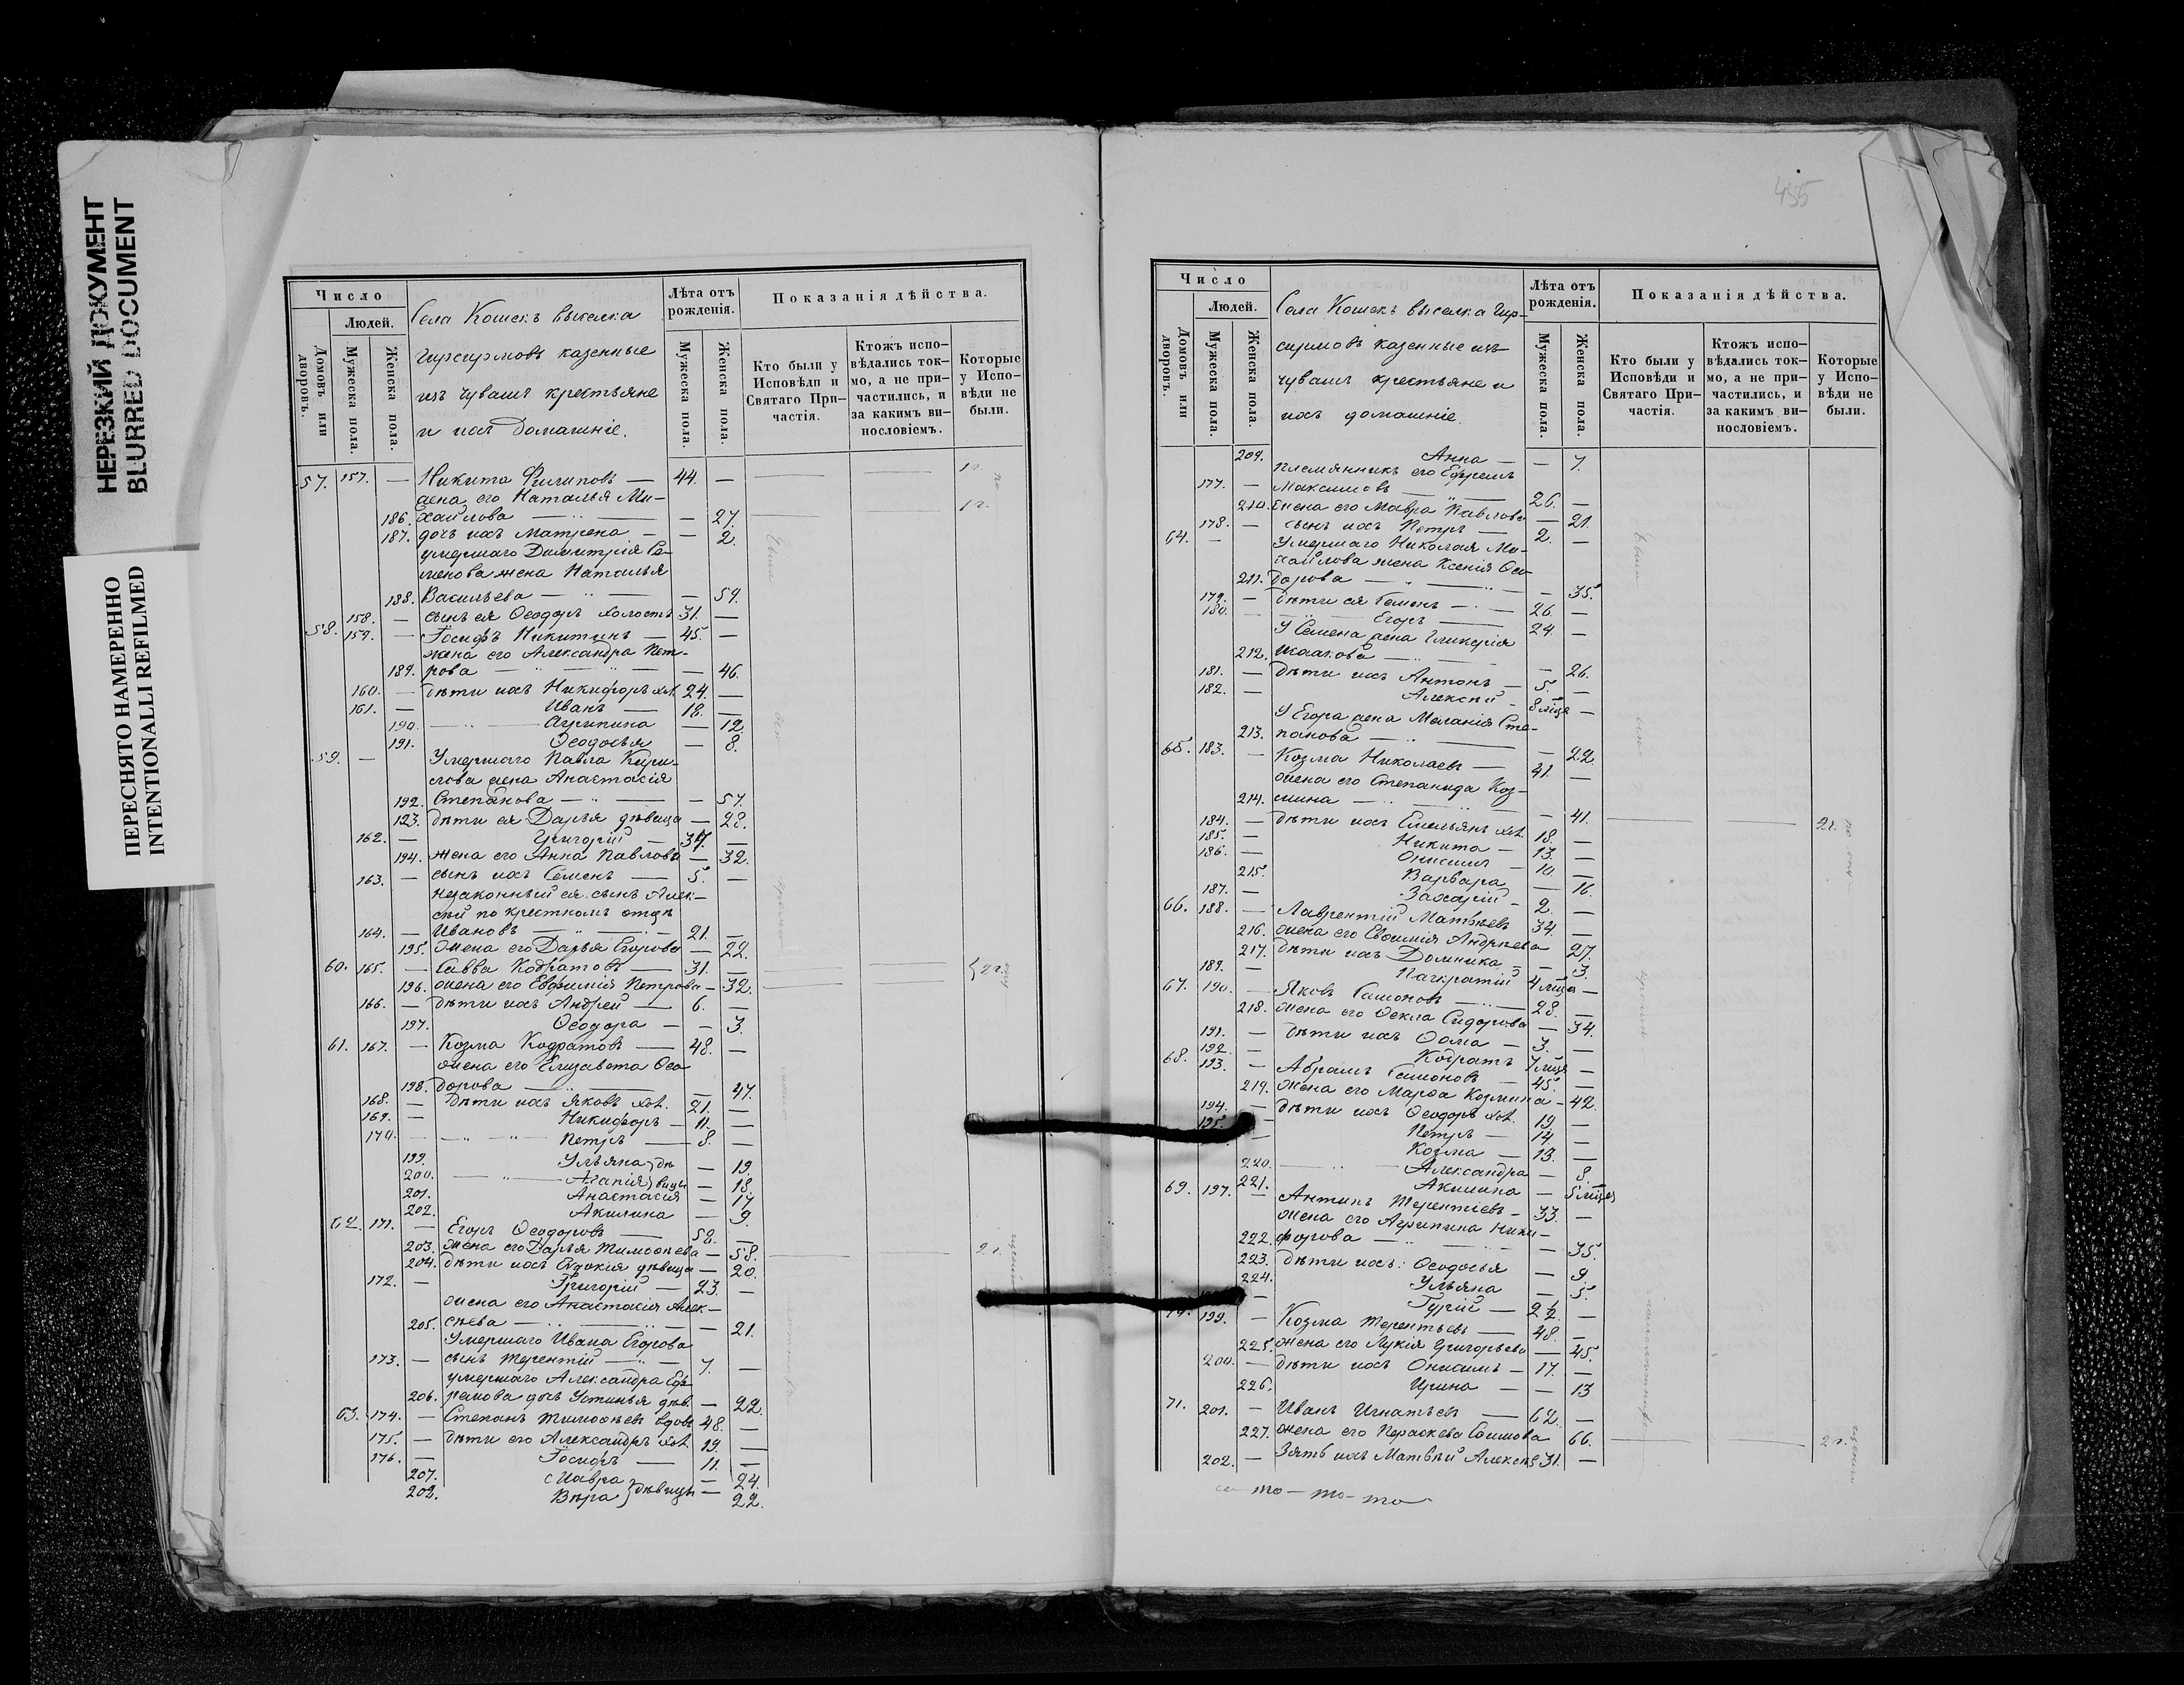 НЕРЕЗКИЙ ДОКУМЕНТ
BLURRED DOCUMENT
ПЕРЕСНЯТО НАМЕРЕННО
INTENTIONALLI REFILMED
Число
Людей.
Домовъ или дворовъ.
Мужеска пола.
Женска пола.
Села Кошекъ выселка
Чирсирмовъ казенные
изъ чувашъ крестьяне
и ихъ домашніе.
Лѣта отъ рожденія.
Мужеска пола.
Женска пола.
Показанія дѣйства.
Кто были у Исповѣди и Святаго Причастія.
Ктожъ исповѣдались токмо, а не причастились, и за какимъ винословіемъ.
Которые у Исповѣди не были.
57. 157. — Никита Филиповъ — 44. — 1г.
жена его Наталья Ми-
186. хайлова — — 27. 1г.
187. дочь ихъ Матрена — — 2.
умершаго Димитрія Се-
менова жена Наталья
188. Васильева — — 59.
158. — сынъ ея Ѳеодоръ холостъ 31. —
58. 159. — Іосифъ Никитинъ — 45. —
жена его Александра Пет-
189. рова — — 46.
160. — дѣти ихъ Никифоръ хол. 24. —
161. — Иванъ — 18. —
190. Агрипина — 12.
191. Ѳеодосья — 8.
59. — Умершаго Павла Кири-
лова жена Анастасія
192. Степанова — — 57.
193. дѣти ея Дарья дѣвица — 28.
162. — Григорій — 37. —
194. жена его Анна Павлова — 32.
163. — сынъ ихъ Семенъ — 5. —
незаконный ея сынъ Алек-
сѣй по крестномъ отцѣ
164. — Ивановъ — 21. —
195. жена его Дарья Егорова — 22.
60. 165. — Савва Кодратовъ — 31. — 2г.
196. жена его Евѳимія Петрова — 32.
166. — дѣти ихъ Андрей — 6. —
197. Ѳеодора — — 3.
61. 167. — Козма Кодратовъ — 48. —
жена его Елизавета Ѳео-
198. дорова — — 47.
168. — дѣти ихъ Яковъ хол. 21. —
169. — Никифоръ — 11. —
170. — Петръ — 8. —
199. Ульяна } дѣ — 19.
200. Агапія } вицы — 18.
201. Анастасія — 14
202. Акилина — 9.
62. 171. — Егоръ Ѳеодоровъ — 58. —
203. жена его Дарья Тимоѳеева — 58. 2г.
204. дѣти ихъ Евдокія дѣвица — 20.
172. — Григорій — 23. —
жена его Анастасія Алек-
205. сѣева — — 21.
Умершаго Ивана Егорова
173. — сынъ Терентій — 7. —
умершаго Александра Еф-
206. ремова дочь Устинья дѣв. — 22.
63. 174. — Степанъ Тимоѳеевъ вдовъ 48. —
175. — дѣти его Александръ хол. 19. —
176. — Іосифъ — 11. —
207. Мавра } — 24.
208. Вѣра } дѣвицы — 22.
455
Число
Людей.
Домовъ или дворовъ.
Мужеска пола.
Женска пола.
Села Кошекъ выселка Чир-
сирмовъ казенные изъ
чувашъ крестьяне и
ихъ домашніе.
Лѣта отъ рожденія.
Мужеска пола.
Женска пола.
Показанія дѣйства.
Кто были у Исповѣди и Святаго Причастія.
Ктожъ исповѣдались токмо, а не причастились, и за какимъ винословіемъ.
Которые у Исповѣди не были.
209. Анна — — 7.
племянникъ его Ефремъ
177. — Максимовъ — 26. —
210. жена его Мавра Павлова — 21.
178. — сынъ ихъ Петръ — 2. —
64. — Умершаго Николая Ми-
хайлова жена Ксенія Ѳео-
211. дорова — — 35.
179. — дѣти ея Семенъ — 26. —
180. Егоръ — 24. —
У Семена жена Гликерія
212. Исаакова — — 26.
181. — дѣти ихъ Антонъ — 5. —
182. — Алексѣй — 8 мѣця —
У Егора жена Меланія Сте-
213. панова — — 22.
65. 183. — Козма Николаевъ — 41. —
жена его Степанида Коз-
214. мина — — 41.
184. — дѣти ихъ Емельянъ хол. 18. — 2г.
185. — Никита — 13. —
186. — Онисимъ — 10. —
215. Варвара — 16.
187. — Захарій — 2. —
66. 188. — Лаврентій Матвѣевъ 34. —
216. жена его Евѳимія Андреева 27.
217. дѣти ихъ Домника — — 3.
189. — Панкратій 4 мѣця —
67. 190. — Яковъ Самоновъ — 28. —
218. жена его Ѳекла Сидорова — 34.
191. — дѣти ихъ Ѳома — 3. —
192. — Кодратъ 7 мѣця —
68. 193. — Абрамъ Самоновъ — 45 —
219. жена его Марѳа Козмина — 42.
194. — дѣти ихъ Ѳеодоръ хол. 19. —
195. — Петръ — 14. —
— Козма — 13. —
220. Александра — 8.
221. Акилина — 5 мѣцев
69. 197. — Антипъ Терентіевъ — 33. —
жена его Агрипина Ники-
222. форова — — 35.
223. дѣти ихъ: Ѳеодосья — 9.
224. Ульяна — 5.
— Гурій — 2½ —
199. — Козма Терентьевъ — 48. —
225. жена его Лукія Григорьева — 45.
200. — дѣти ихъ Онисимъ — 17. —
226. Ирина — — 13
71. 201. — Иванъ Игнатьевъ — 62. —
227. жена его Параскева Ефимова 66. 2г.
202. — Зять ихъ Матвѣй Алексѣ 31. —
то — то — то